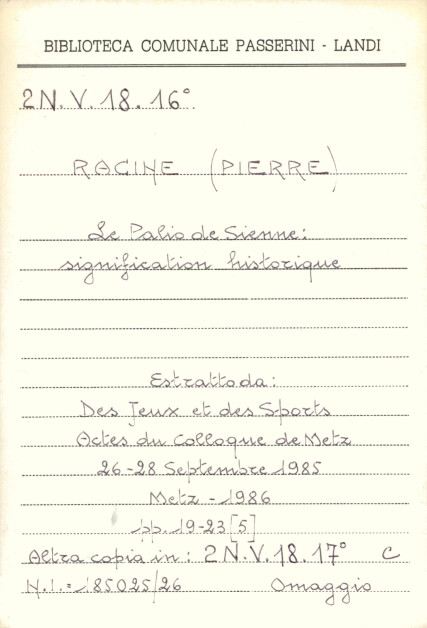 BIBLIOTECA COMUNALE PASSERINI - LANDI
2N.V.18.16°
RACINE (PIERRE)
Le Palio de Sienne:
signification historique
Estratto da:
Des Jeux et des Sports
Actes du Colloque de Metz
26-28 Septembre 1985
Metz - 1986
pp. 19-23 [5]
Altra copia in: 2N.V.18.17° C
N.I.=185025/26 Omaggio